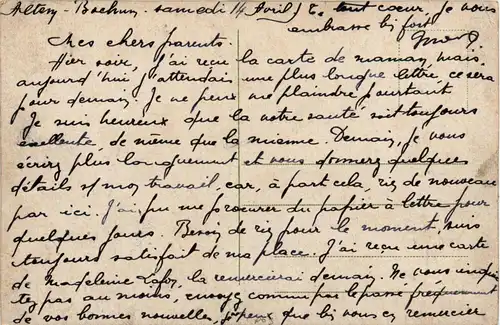 Alten-Bochum. samedi 14 Avril 17. tout coeur, je vous
embrasse bi fort
Mes chers parents.
Hier soir, j'ai reçu la carte de maman, mais
aujourd'hui j'attendais une plus longue lettre, ce sera
pour demain. Je ne peux me plaindre pourtant
Je suis heureux que la votre santé soit toujours
excellente, de même que la mienne. Demain, je vous
écrirai plus longuement et vous donnerai quelques
détails s/ mon travail, car, à part cela, rien de nouveau
par ici. J'ai pu me procurer du papier à lettre pour
quelques jours. Besoin de rien pour le moment, suis
toujours satisfait de ma place. J'ai reçu une carte
de Madeleine, la remercierai demain. Ne vous inquié
tez pas au moins, envoyez comme par le passé fréquemment
de vos bonnes nouvelles, je ne peux que bi vous en remercier